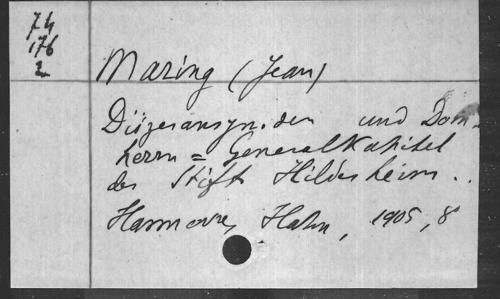 74
176
2
Maring (Jean)
Diözesansyn. den und Dom-
herrn = Generalkapitel
des Stift Hildesheim..
Hannover, Hahn, 1905, 8°